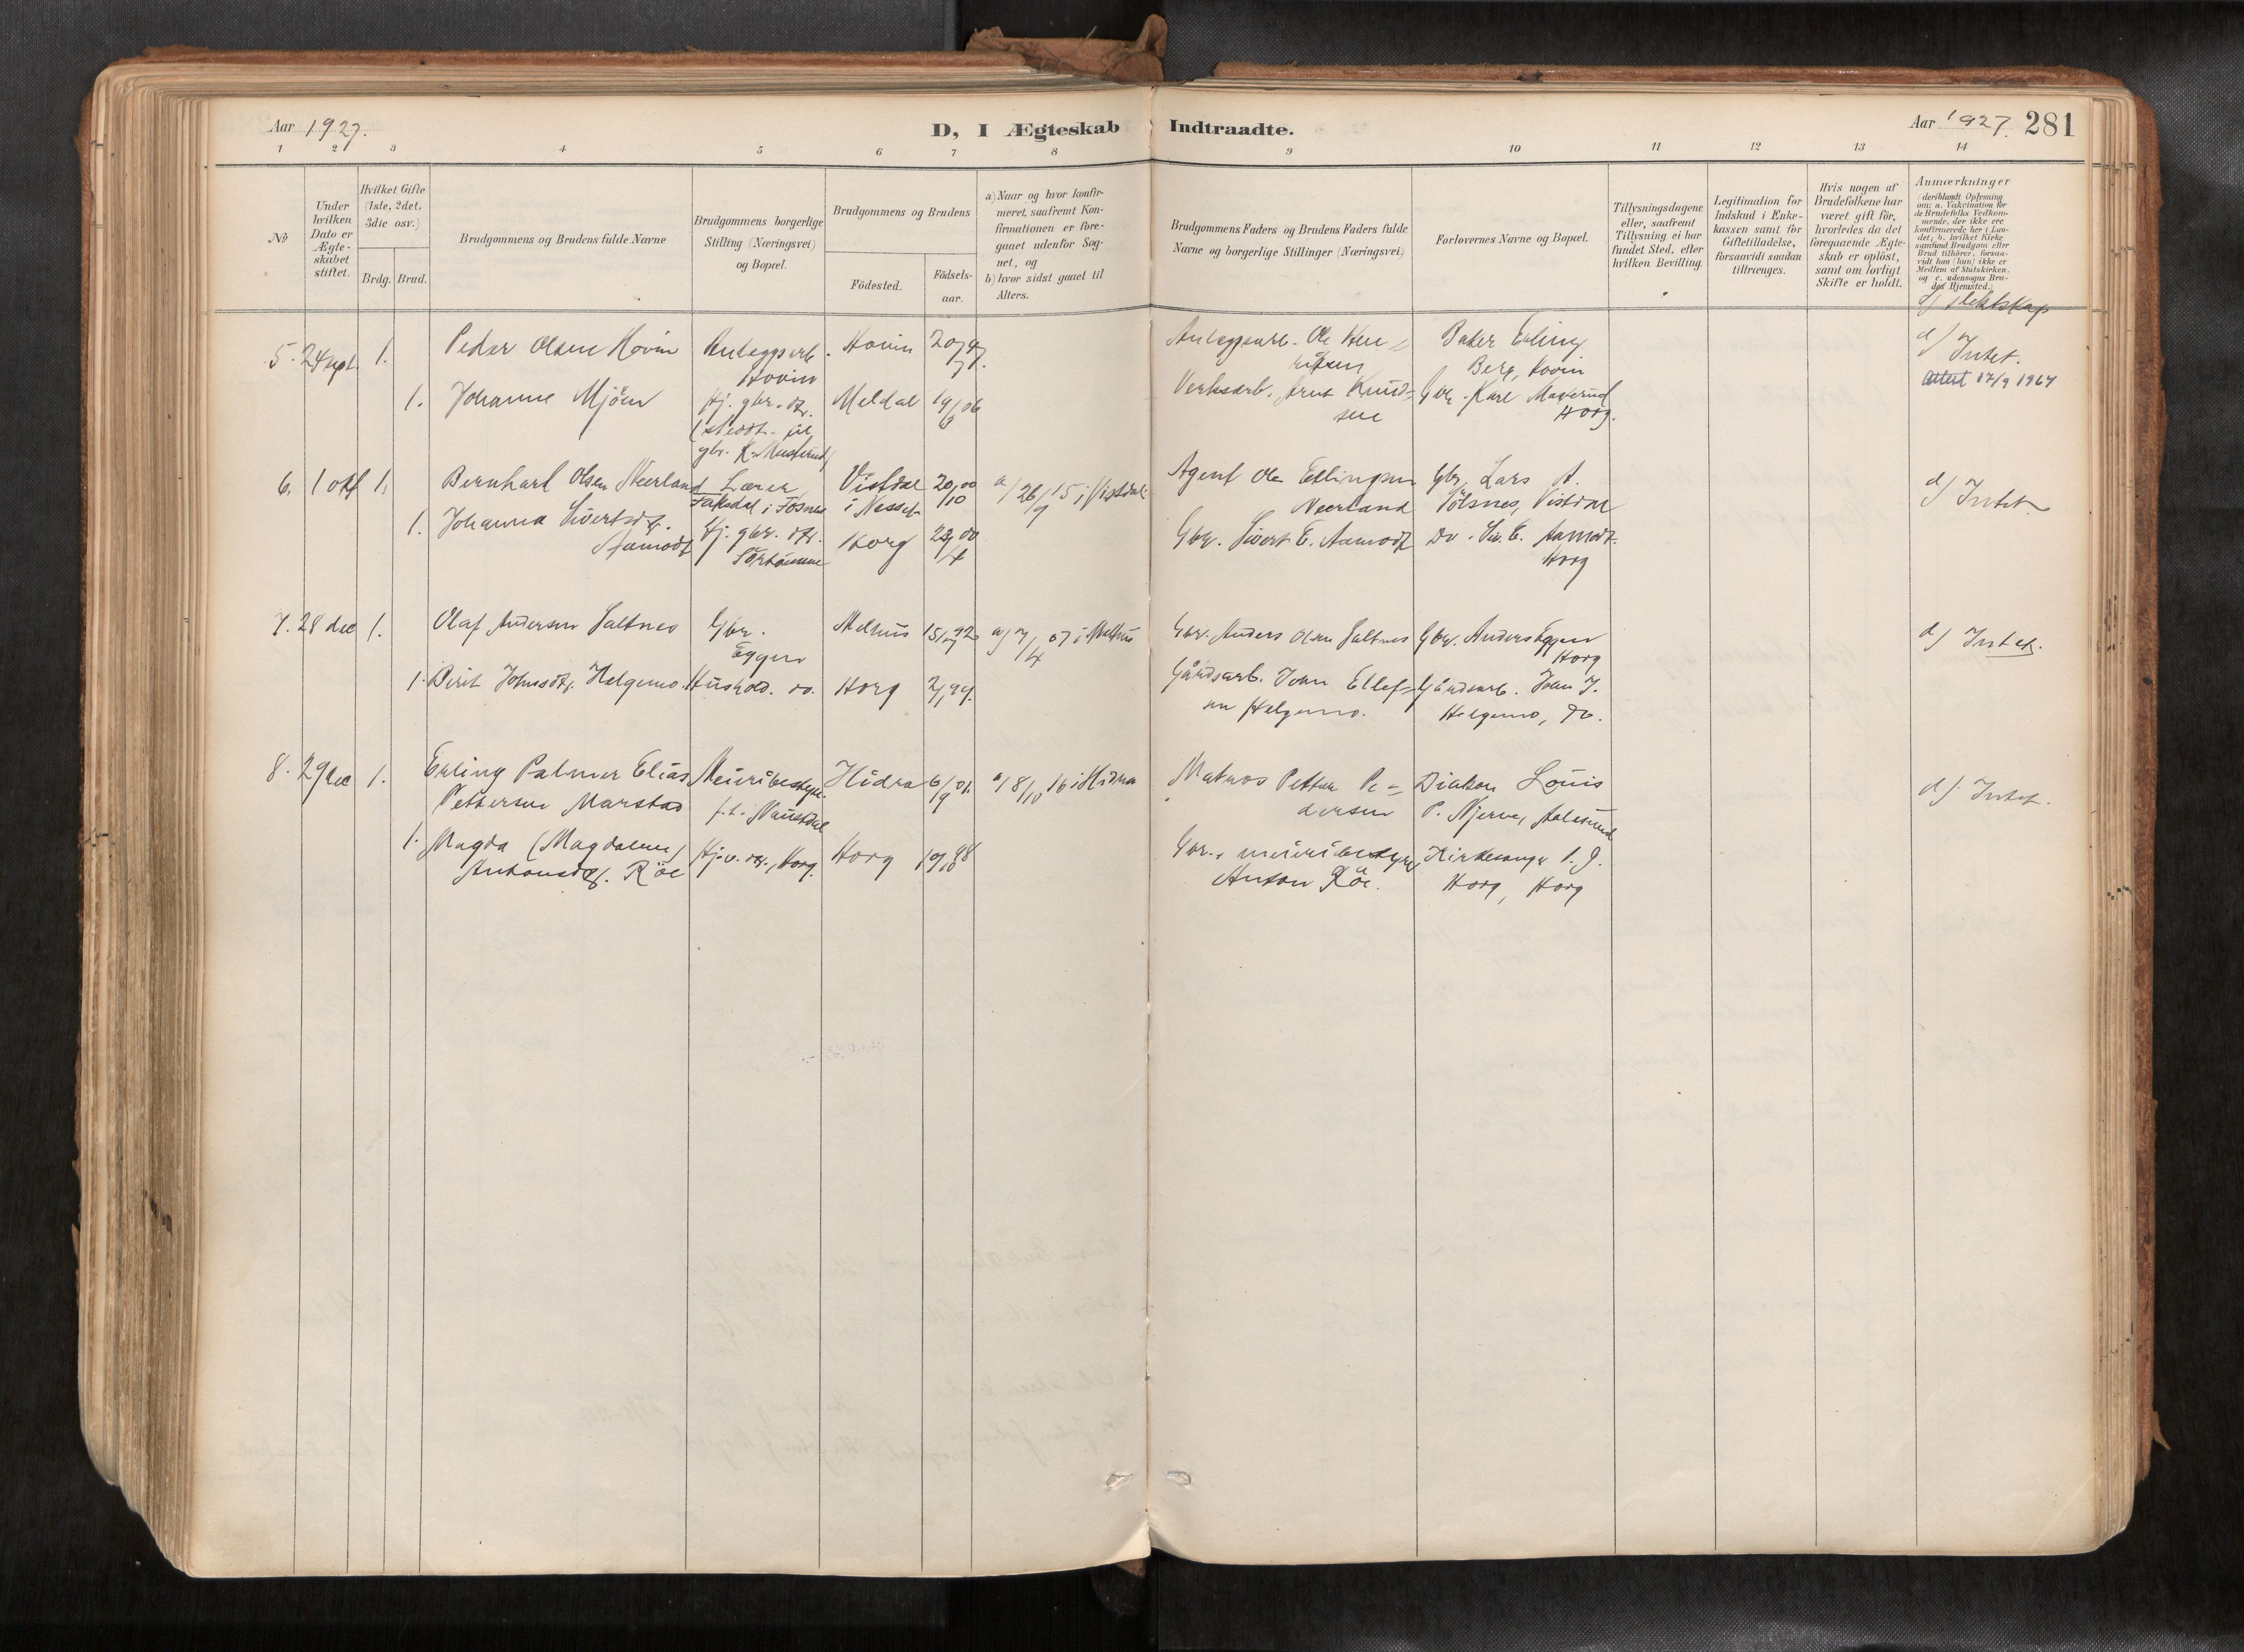 Aar 1927.
D, I Ægteskab Indtraadte.
Aar 1927. 281
1 2 3 4 5 6 7 8 9 10 11 12 13 14
No
Under hvilken Dato er Ægteskabet stiftet.
Hvilket Gifte (1ste, 2det, 3die osv.)
Brdg. Brud.
Brudgommens og Brudens fulde Navne
Brudgommens borgerlige Stilling (Næringsvei) og Bopæl.
Brudgommens og Brudens
Födested.
Födselsaar.
a) Naar og hvor konfirmeret, saafremt Konfirmationen er foregaaet udenfor Sognet, og
b) hvor sidst gaaet til Alters.
Brudgommens Faders og Brudens Faders fulde Navne og borgerlige Stillinger (Næringsvei)
Forlovernes Navne og Bopæl.
Tillysningsdagene eller, saafremt Tillysning ei har fundet Sted, efter hvilken Bevilling.
Legitimation for Indskud i Enkekassen samt for Giftetilladelse, forsaavidt saadan tiltrænges.
Hvis nogen af Brudefolkene har været gift för, hvorledes da det foregaaende Ægteskab er oplöst, samt om lovligt Skifte er holdt.
Anmærkninger (deriblandt Oplysning om: a. Vakcination for de Brudefolks Vedkommende, der ikke ere konfirmerede her i Landet; b. hvilket Kirkesamfund Brudgom eller Brud tilhörer, forsaavidt han (hun) ikke er Medlem af Statskirken, og c. udensogns Brudes Hjemsted.)
d) slektskap
5. 24 sept. 1. Peder Olsen Hovin
Anleggsarb. Hovin
Hovin 20/7
Anleggsarb. Ole
Baker Erling Berg, Hovin
d) Intet.
Attest 17/9 1964
1. Johanne Mjöen
Hj. gbr. dtr.
Meldal 19/3 06
Verksarb. Arnt Knudsen
Gbr. Karl
Horg.
6. 1 okt 1. Bernhard Olsen Neerland
Lærer
i Fosnes
Vistdal i Nesset 20/10 00
a/ 26/9 15 i Vistdal
Agent Ole Ellingsen Neerland
Gbr. Lars A. Vistdal
d) Intet
1. Johanna Sivertsdtr. Aamodt
Hj. gbr. dtr.
Horg 00
Gbr. Sivert E. Aamodt
Do. Siv. E. Aamodt. Horg
7. 28 dec 1. Olaf Andersen Saltnes
Gbr. Eggen
Melhus 15/7 92
a) 7/4 07 i Melhus
Gbr. Anders Olsen Saltnes
Gbr. Anders Eggen Horg
d) Intet.
1. Berit Johnsdtr. Helgemo.
Hushold. do.
Horg 2/1 99.
Gårdsarb. John Ellefsen Helgemo.
Gårdsarb. John J. Helgemo, do.
8. 29 dec 1. Erling Palmer Elias Pettersen Marstad
Meieribestyr. f.t. Naustdal
Hidra 6/9 01.
a/ 8/10 16 i Hidra
Matros Petter Pedersen
Diakon Louis P. Njerve, Aalesund
d). Intet.
1. Magda (Magdalene) Antonsdtr. Röe
Horg.
Horg 19/10 98
Gbr., meieribestyrer Anton Röe.
Kirkesanger I. J. Horg, Horg